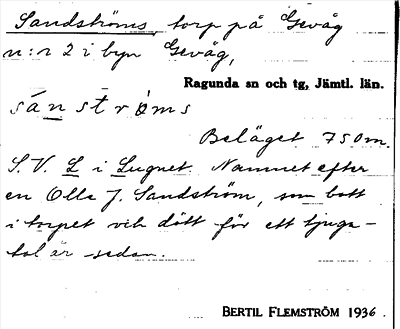 Sandströms, torp på Gevåg
n:r 2 i byn Gevåg,
Ragunda sn och tg, Jämtl. län.
sánströms
Beläget 750 m.
S.V. L i Lugnet. Namnet efter
en Olle J. Sandström, som bott
i torpet och dött för ett tjuge-
tal år sedan.
BERTIL FLEMSTRÖM 1936.